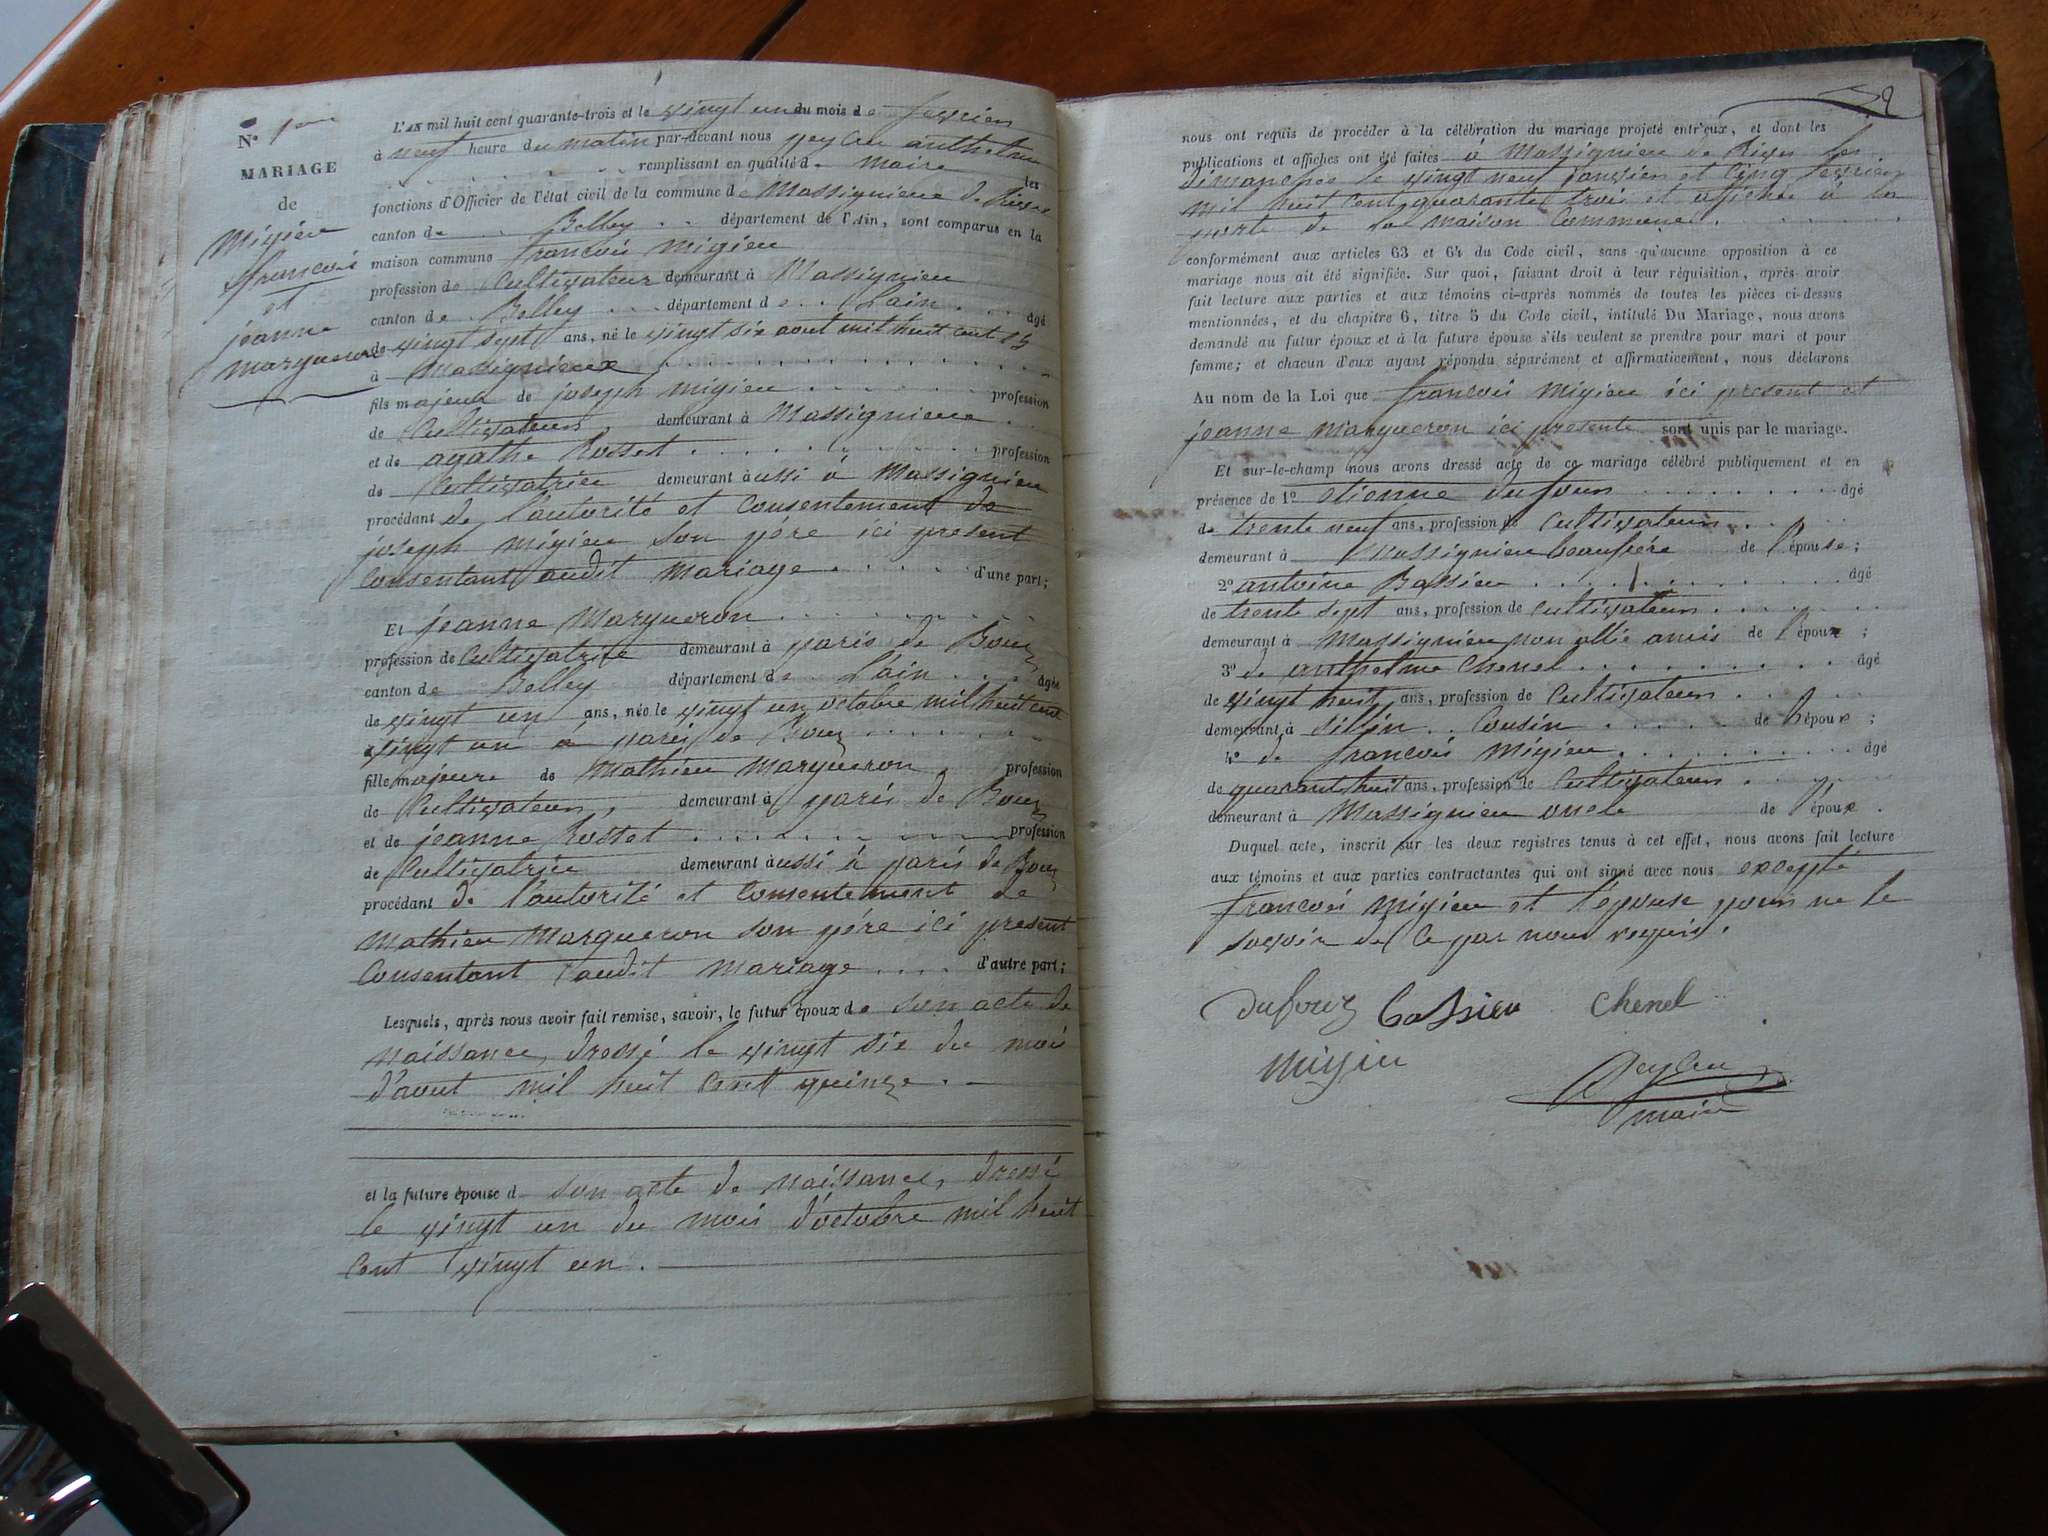 N° 1er
MARIAGE
de
Migieu
françois
et
jeanne
marqueron
L'AN mil huit cent quarante-trois et le vingt un du mois de fevrier
à neuf heure du matin par-devant nous peylau anthelme
remplissant en qualité de maire les
fonctions d'Officier de l'état civil de la commune de Massignieux de Rives
canton de Belley département de l'Ain, sont comparus en la
maison commune françois migieu
profession de Cultivateur demeurant à Massignieu
canton de Belley département de Lain âgé
de vingt sept ans, né le vingt six aout mil huit cent 15
à Massignieux
fils majeur de joseph migieu profession
de Cultivateur demeurant à Massignieux
et de agathe Rosset profession
de Cultivatrice demeurant àussi à Massignieu
procédant de l'autorité et consentement de
joseph migieu son père ici present
Consentant audit mariage d'une part;
Et jeanne Marqueron
profession de Cultivatrice demeurant à parès de Bouz
canton de Belley département de Lain âgée
de vingt un ans, née le vingt un octobre mil huit cent
vingt un à parès de Bouz
fille majeure de Mathieu Marqueron profession
de Cultivateur, demeurant à parès de Bouz
et de jeanne Rosset profession
de Cultivatrice demeurant àussi à parès de Bouz
procédant de l'autorité et consentement de
Mathieu Marqueron son père ici present
Consentant audit mariage d'autre part;
Lesquels, après nous avoir fait remise, savoir, le futur époux de son acte de
naissance, dressé le vingt six du mois
d'aout mil huit cent quinze.
et la future épouse d son acte de naissance, dressé
le vingt un du mois d'octobre mil huit
cent vingt un.
nous ont requis de procéder à la célébration du mariage projeté entr'eux, et dont les
publications et affiches ont été faites à Massignieu de Rives les
dimanches le vingt neuf janvier et cinq fevrier
mil huit cent quarante trois et affichée à la
porte de la maison Commune.
conformément aux articles 63 et 64 du Code civil, sans qu'aucune opposition à ce
mariage nous ait été signifiée. Sur quoi, faisant droit à leur réquisition, après avoir
fait lecture aux parties et aux témoins ci-après nommés de toutes les pièces ci-dessus
mentionnées, et du chapitre 6, titre 5 du Code civil, intitulé Du Mariage, nous avons
demandé au futur époux et à la future épouse s'ils veulent se prendre pour mari et pour
femme; et chacun d'eux ayant répondu séparément et affirmativement, nous déclarons
Au nom de la Loi que françois Migieu ici present et
jeanne marqueron ici presente sont unis par le mariage.
Et sur-le-champ nous avons dressé acte de ce mariage célébré publiquement et en
présence de 1° etienne dufour âgé
de trente neuf ans, profession de Cultivateur
demeurant à Massignieu beaufrère de l'épouse;
2° antoine Bassieu âgé
de trente sept ans, profession de cultivateur
demeurant à Massignieu non allié amis de l'époux;
3° de anthelme Chenel âgé
de vingt huit ans, profession de Cultivateur
demeurant à silin Cousin de l'époux;
4° de françois Migieu âgé
de quarante huit ans, profession de Cultivateur
demeurant à Massignieu oncle de l'époux.
Duquel acte, inscrit sur les deux registres tenus à cet effet, nous avons fait lecture
aux témoins et aux parties contractantes qui ont signé avec nous excepté
françois migieu et l'épouse pour ne le
savoir de ce par nous requis.
Dufour Bassieu Chenel
migieu
maire